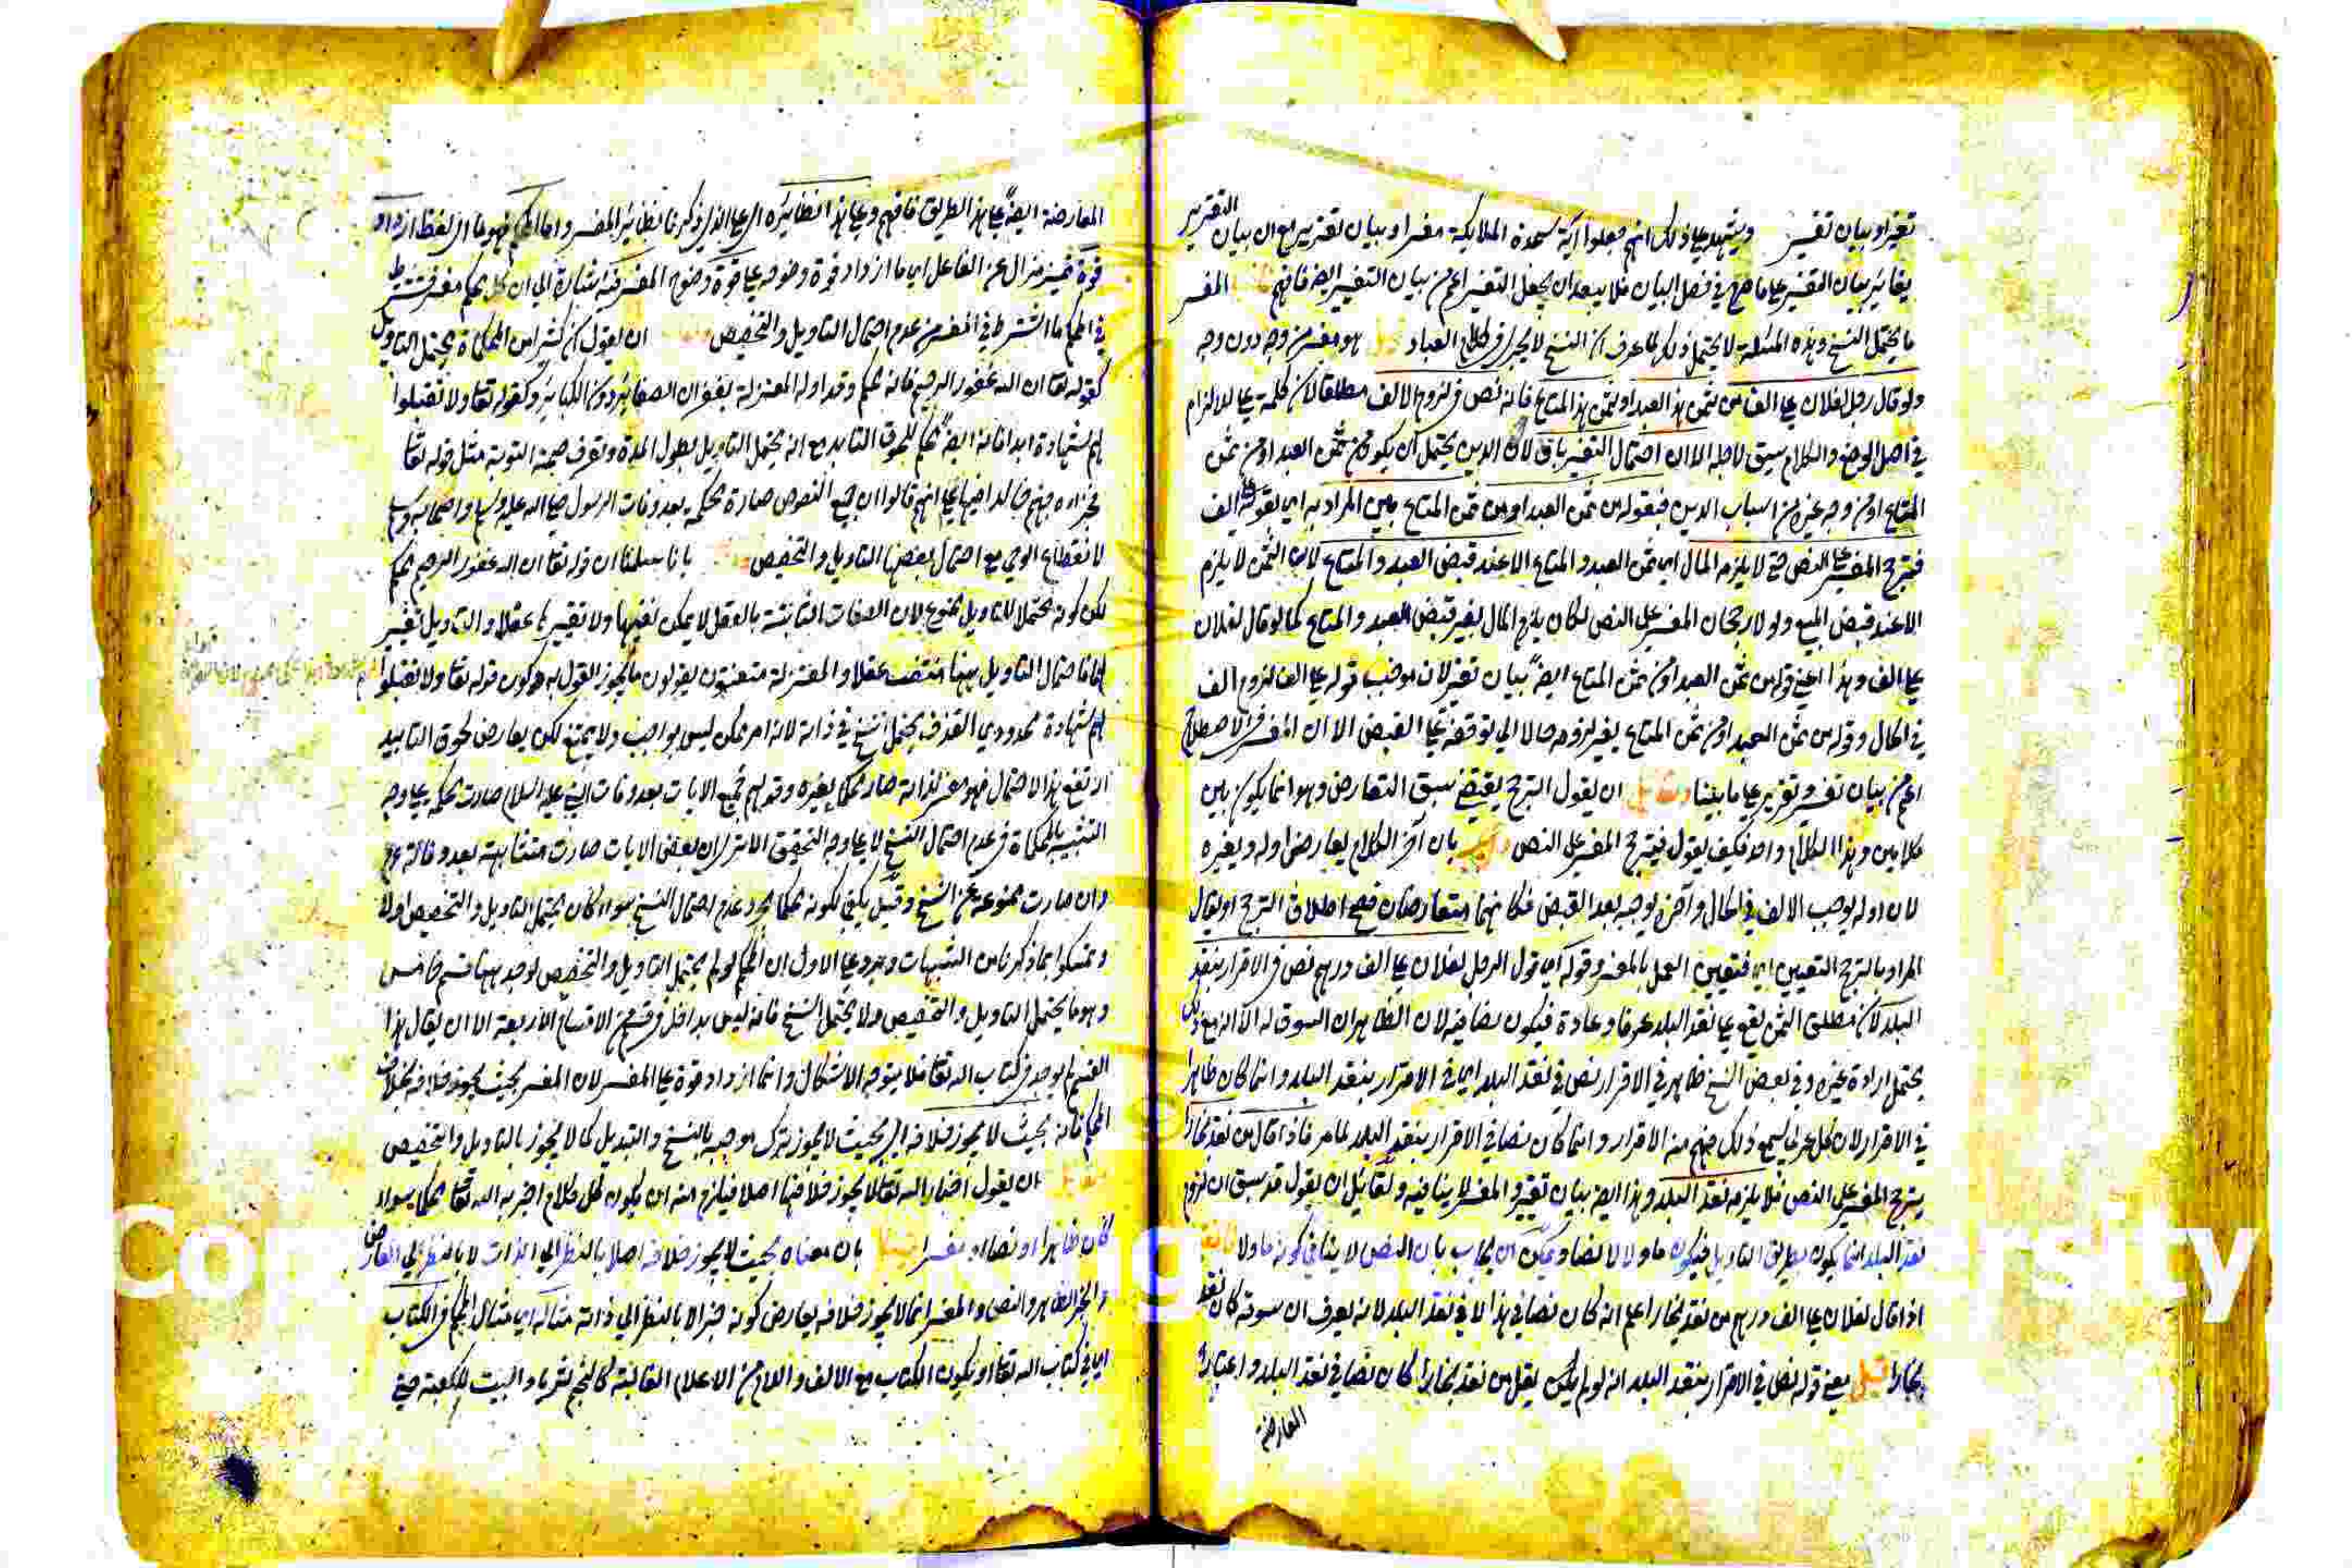 تغيير او بيان تفسير ويشهد على ذلك انهم جعلوا آية سجدة الملائكة مفسرا وبيان تقرير مع ان بيان التقرير
يغاير بيان التفسير على ما هو في فصل البيان فلا يبعد ان يجعل التفسير اعم من بيان التغيير ايضا فافهم المفسر
ما يحتمل النسخ وهذه المسئلة لا يحتمل ذلك لما عرف ان النسخ لا يجري في كلام العباد هو مفسر من وجه دون وجه
ولو قال رجل لفلان على الف من ثمن هذا العبد او ثمن هذا المتاع فانه نص في لزوم الالف مطلقا لان كلمة على للالزام
في اصل الوضع والكلام سيق لاجله الا ان احتمال التفسير باق لان الدين يحتمل ان يكون من ثمن العبد او من ثمن
المتاع او من وجه غيره من اسباب الدين فبقوله من ثمن العبد او من ثمن المتاع بين المراد به اي بقوله على الف
فيترجح المفسر على النص حتى لا يلزمه المال اي ثمن العبد والمتاع الا عند قبض العبد والمتاع لان الثمن لا يلزم
الا عند قبض المبيع ولو لا رجحان المفسر على النص لكان يلزم المال بغير قبض العبد والمتاع كما لو قال لفلان
على الف وهذا اعني قوله من ثمن العبد او من ثمن المتاع ايضا بيان تغيير لان موجب قوله على الف لزوم الف
في الحال وقوله من ثمن العبد او من ثمن المتاع يغير لزومه حالا الى توقفه على القبض الا ان المفسر في الاصطلاح
اعم من بيان تفسير وتغيير على ما بينا ولقائل ان يقول الترجح يقتضي سبق التعارض وهو انما يكون بين
كلامين وهذا الكلام واحد فكيف يقول فيترجح المفسر على النص واجيب بان آخر الكلام يعارض اوله ويغيره
لان اوله يوجب الالف في الحال وآخره يوجبه بعد القبض فكانهما متعارضان فصح اطلاق الترجح او يقال
المراد بالترجح التعيين اي فتعيين العمل بالمفسر وقوله اي قول الرجل لفلان على الف درهم نص في الاقرار بنقد
البلد لان مطلق الثمن يقع على نقد البلد عرفا وعادة فيكون نصا فيه لان الظاهر ان السوق له الا انه مع ذلك
يحتمل ارادة غيره وفي بعض النسخ ظاهر في الاقرار نص في نقد البلد اي في الاقرار بنقد البلد وانما كان ظاهرا
في الاقرار لان كل عربي يسمع ذلك فهم منه الاقرار وانما كان نصا في الاقرار بنقد البلد لما مر فاذا قال من نقد بخارا
يترجح المفسر على النص فلا يلزمه نقد البلد وهذا ايضا بيان تغيير والمفسر لا ينافيه ولقائل ان يقول قد سبق ان لزوم
نقد البلد انما يكون بطريق التاويل فيكون ماولا لا نصا ويمكن ان يجاب بان النص لا ينافي كونه ماولا
اذا قال لفلان على الف درهم من نقد بخارا علم انه كان نصا في هذا لا في نقد البلد لانه يعرف ان سوقه كان لنقد
بخارا قيل معنى قوله نص في الاقرار بنقد البلد انه لو لم يكن يقل من نقد بخارا كان نصا في نقد البلد واعتبار
المعارضة
المعارضة ايضا على هذا الطريق فافهم وعلى هذا نظائره اي على الذي ذكرنا نظائر المفسر واما المحكم فهو ما اي لفظ ازداد
قوة تمييز مزال عن الفاعل اي ما ازداد قوة وضوحه على قوة وضوح المفسر فيه اشارة الى ان كل محكم مفسر فيشترط
في المحكم ما اشترط في المفسر من عدم احتمال التاويل والتخصيص ان يقول ان كثيرا من المحكمات يحتمل التاويل
كقوله تعا ان الله غفور رحيم فانه محكم وقد اوله المعتزلة بغفران الصغائر دون الكبائر وكقوله تعا ولا تقبلوا
لهم شهادة ابدا فانه ايضا محكم للحوق التابيد مع انه يحتمل التاويل بطول المدة وتعرف صحة التوبة مثل قوله تعا
فجزاؤه جهنم خالدا فيها على انهم قالوا ان جميع النصوص صارت محكمة بعد وفات الرسول صلى الله عليه وسلم
لانقطاع الوحي مع احتمال بعضها التاويل والتخصيص بانا سلمنا ان قوله تعا ان الله غفور رحيم محكم
لكن كونه محتملا للتاويل ممنوع لان الصفات الثابتة بالعقل لا يمكن نفيها ولا تغييرها عقلا والتاويل تغيير
لها فاحتمال التاويل ههنا منتف عقلا والمعتزلة متعنتون يقولون ما لا يجوز القول به وكون قوله تعا ولا تقبلوا
لهم شهادة محدودي القذف يحتمل نسخ في ذاته لانه امر ممكن ليس بواجب ولا ممتنع لكن يعارض لحوق التابيد
ارتفع هذا الاحتمال فهو مفسر لذاته صار محكما بغيره وقولهم جميع الايات بعد وفات النبي عليه السلام صارت محكمة على وجه
التشبيه بالمحكمات في عدم احتمال النسخ لا على وجه التحقيق الا ترى ان بعض الايات صارت متشابهة بعد وفاته عم
وان صارت ممنوعة عن النسخ وقيل يكفي لكونه محكما مجرد عدم احتمال النسخ سواء كان يحتمل التاويل والتخصيص او لا
وتمسكوا بما ذكرنا من الشبهات ويرد على الاول ان المحكم لو لم يحتمل التاويل والتخصيص لوجد ههنا قسم خامس
وهو ما يحتمل التاويل والتخصيص ولا يحتمل النسخ فانه ليس بداخل في قسم من الاقسام الاربعة الا ان يقال هذا
القسم لم يوجد في كتاب الله تعا فلا يتوجه الاشكال وانما ازداد قوة على المفسر لان المفسر بحيث يجوز خلافه بخلاف
المحكم فانه بحيث لا يجوز خلافه اي بحيث لا يجوز ترك موجبه بالنسخ والتبديل كما لا يجوز بالتاويل والتخصيص
ان يقول اخبار الله تعا لا يجوز خلافها اصلا فيلزم منه ان يكون كل كلام اخبر به الله تعا محكما سواء
كان ظاهرا او نصا او مفسرا قلنا بان معناه بحيث لا يجوز خلافه اصلا بالنظر الى الذات لا بالنظر الى العارض
والخبر الظاهر والنص والمفسر انما لا يجوز خلافه يعارض كونه خبرا لا بالنظر الى ذاته مثاله اي مثال المحكم في الكتاب
اي في كتاب الله تعا او يكون الكتاب مع الالف واللام من الاعلام الغالبة كالنجم لثريا والبيت للكعبة حتى